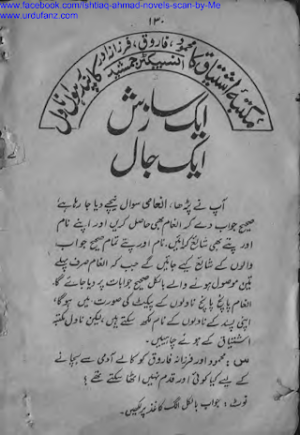 www.facebook.com/ishtiaq-ahmad-novels-scan-by-Me
www.urdufanz.com
۱۳۰
مکتبہ اشتیاق کا محمود، فاروق، فرزانہ اور
انسپکٹر جمشید
ناول
ایک سازش
ایک جال
آپ نے پڑھا، انعامی سوال نیچے دیا جا رہا ہے
صحیح جواب دے کر انعام بھی حاصل کریں اور اپنے نام
اور پتے بھی شائع کرائیں، نام اور پتے تمام صحیح جواب
والوں کے شائع کیے جائیں گے جب کہ انعام صرف پہلے
تین موصول ہونے والے بالکل صحیح جوابات پر دیا جائے گا۔
انعام پانچ پانچ ناولوں کے پیکٹ کی صورت میں ہوگا،
اپنی پسند کے ناولوں کے نام لکھ سکتے ہیں، لیکن ناول مکتبہ
اشتیاق کے ہونے چاہییں۔
س: محمود اور فرزانہ فاروق کو کالے آدمی سے بچانے
کے لیے کیا کوئی اور قدم نہیں اٹھا سکتے تھے؟
نوٹ: جواب بالکل الگ کاغذ پر لکھیں۔